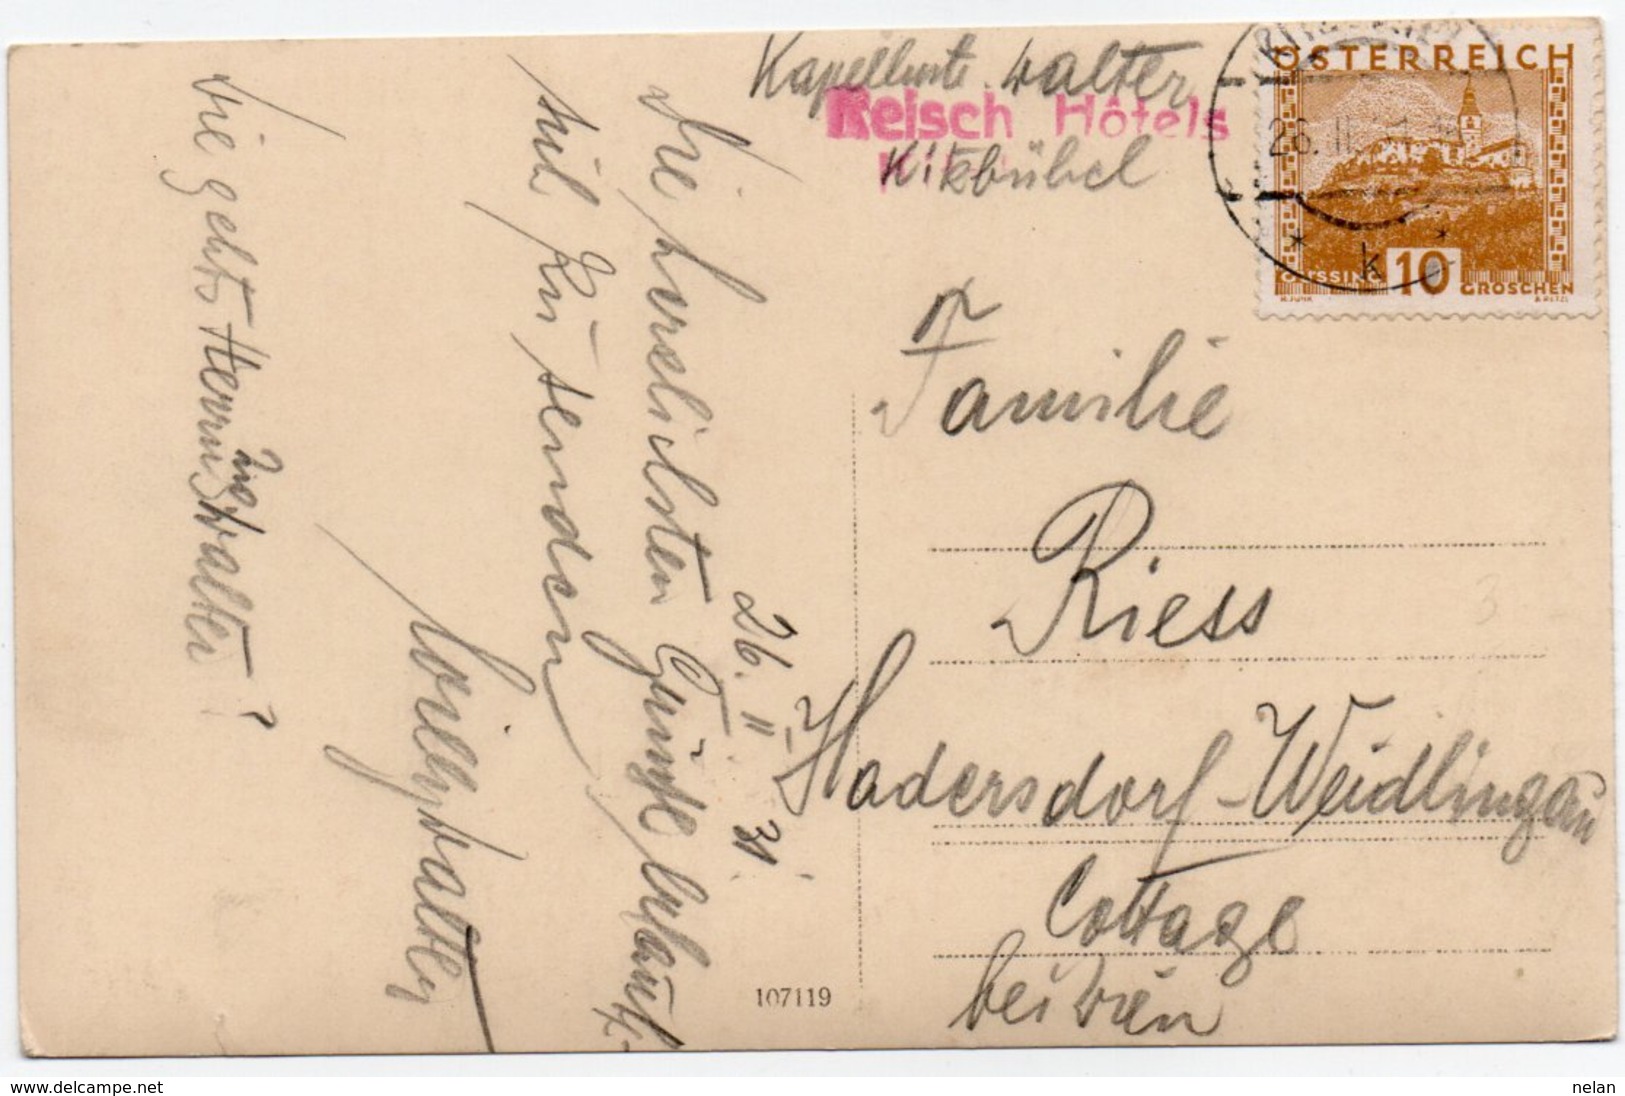 Kapellmst. Walter
Reisch Hôtels
Kitzbühel
ÖSTERREICH
26. II.
k
GÜSSING 10 GROSCHEN
Familie
Riess
Hadersdorf-Weidlingau
Cottage
bei Wien
107119
26. II. 31.
Die herzlichsten Grüsse erlaubt
sich zu senden
Willy Walter
Wie gehts Herrn Walter?
www.delcampe.net
nelan